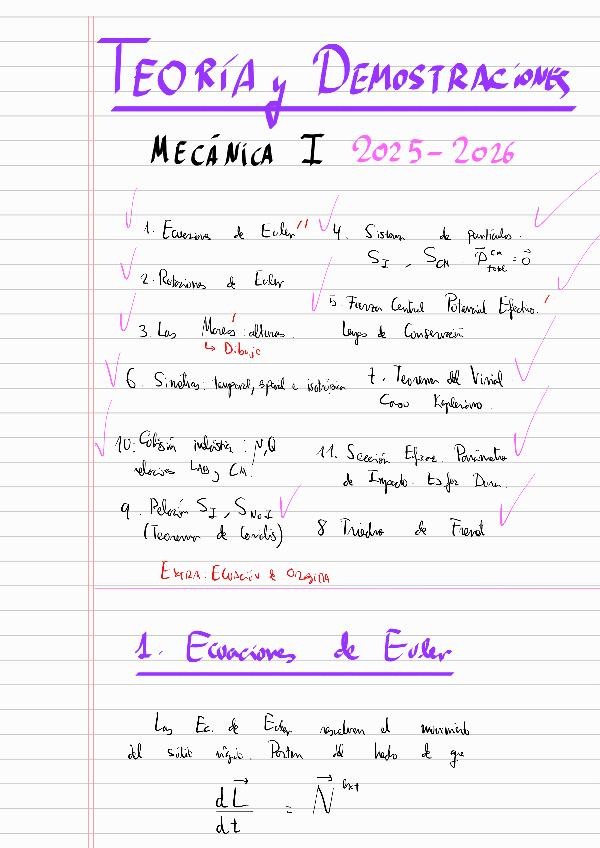 TEORÍA y DEMOSTRACIONES
MECÁNICA I 2025-2026
1. Ecuaciones de Euler
2. Rotaciones de Euler
3. Las Mareas: alturas.
↳ Dibujo
4. Sistema de partículas.
S_I, S_CM P⃗^CM_total = 0⃗
5. Fuerza Central Potencial Efectivo.
Leyes de Conservación
6. Simetrías: temporal, espacial e isotrópica
7. Teorema del Virial
Caso Kepleriano.
10. Colisión inelástica: N, Q
relaciones LAB y CM!
11. Sección Eficaz. Parámetro
de Impacto. Esfer Dura.
9. Relación S_I, S_No I
(Teorema de Coriolis)
8 Triedro de Frenet
EXTRA. ECUACIÓN de
1. Ecuaciones de Euler
Las Ec. de Euler resuelven el movimiento
del sólido rígido. Parten del hecho de que
dL⃗/dt = N⃗^ext